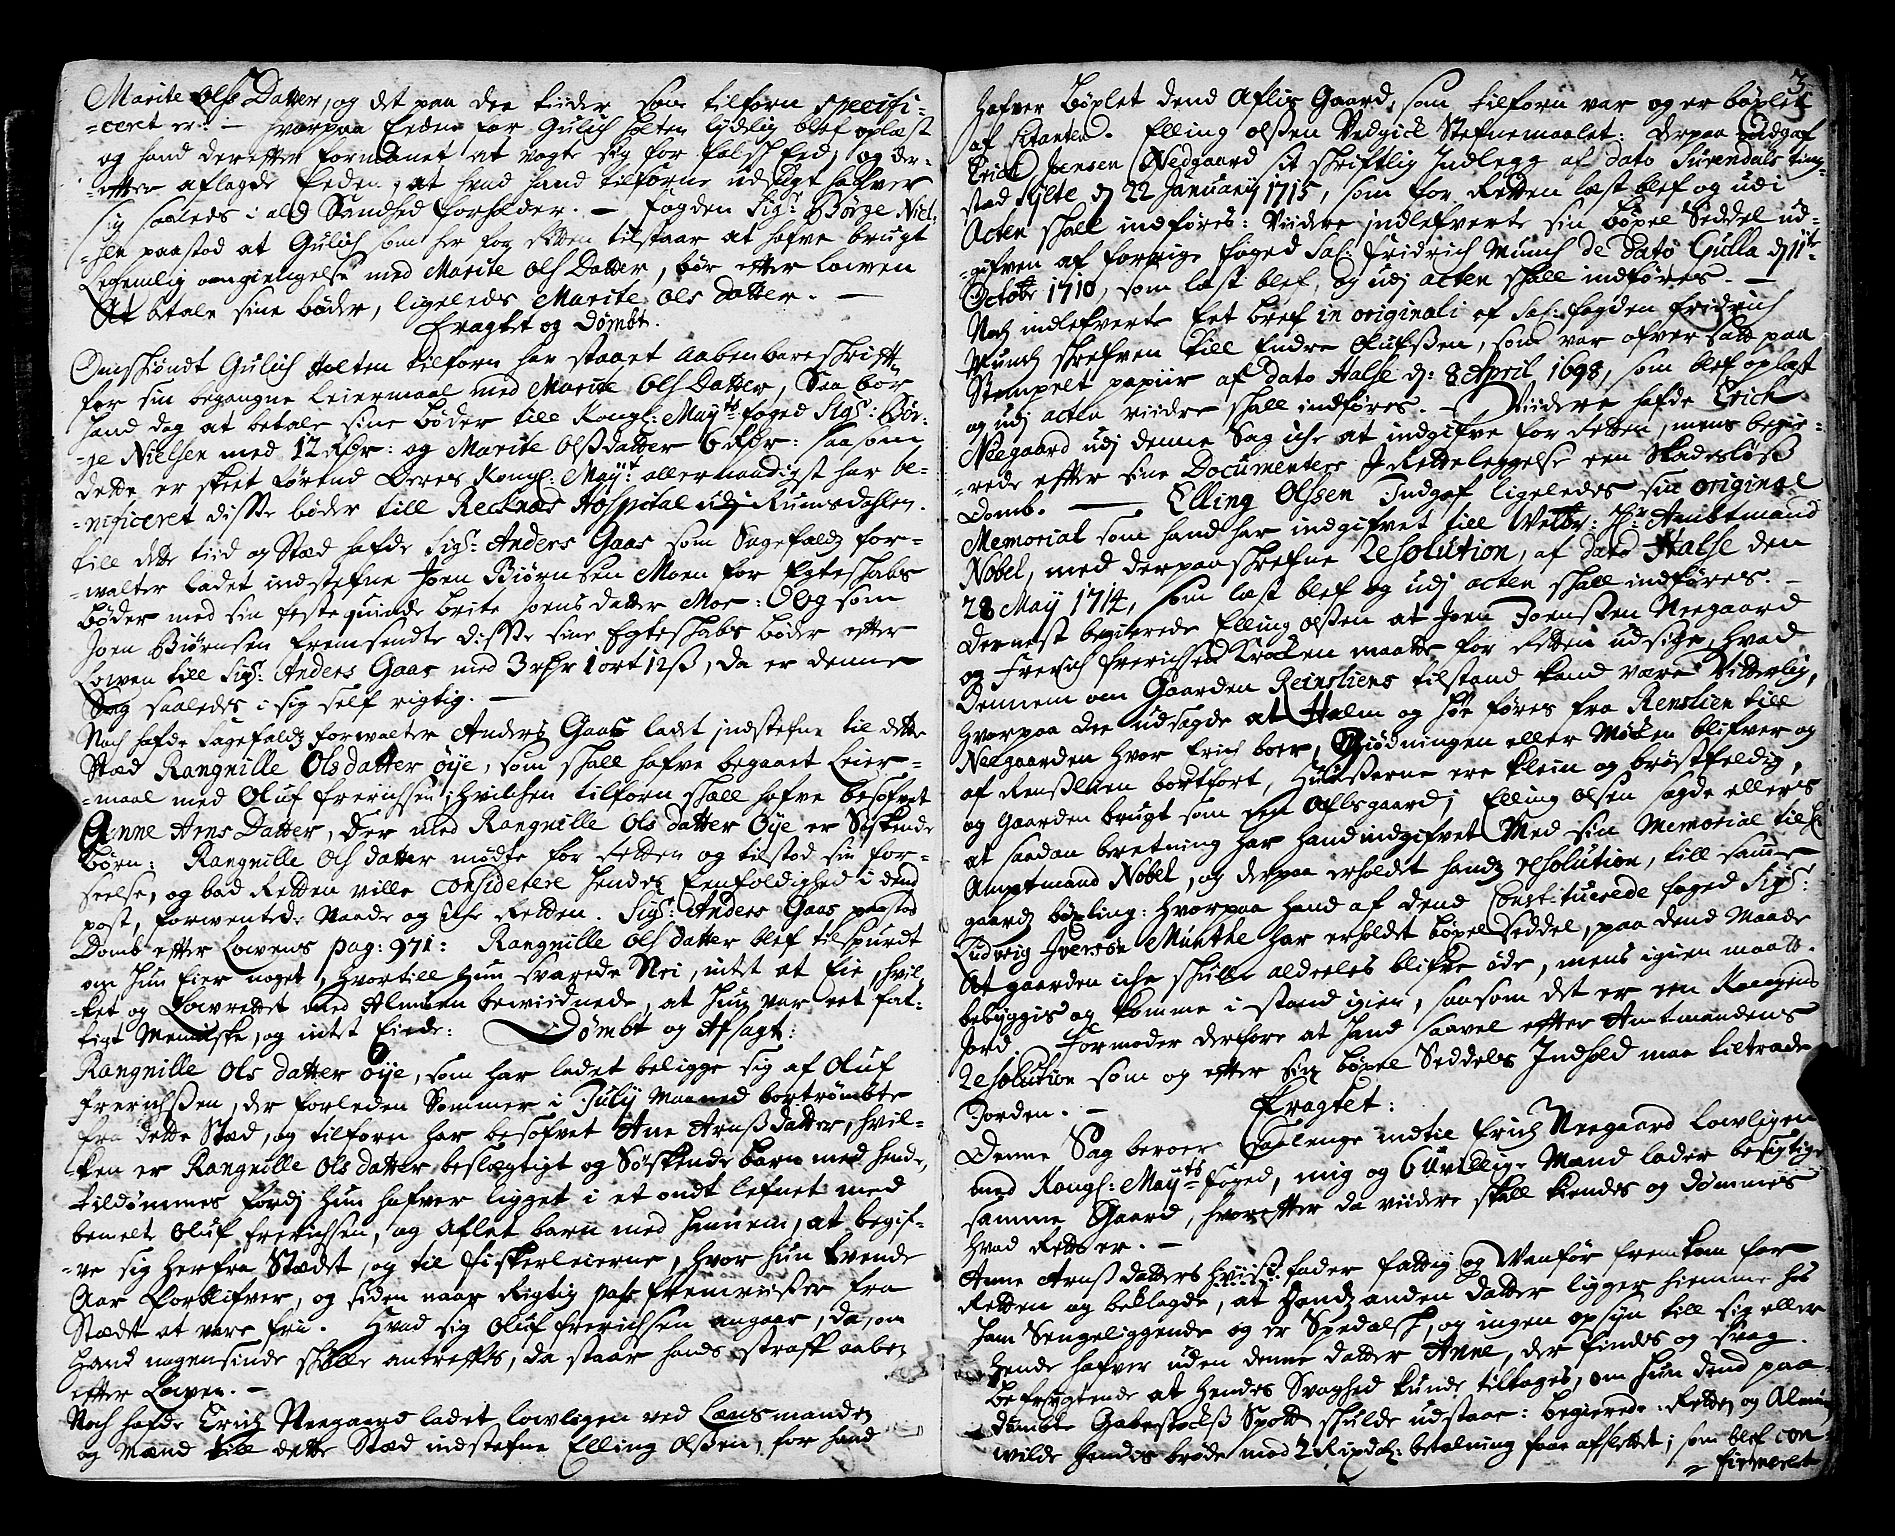 Marite Olss Datter, og det paa dee tiider som tilforn specifi-
-ceret er: - hvorpaa Eeden for Gulich Holten lydlig blef oplæst
og hand derefter formanet at vogte sig for falsch Eed, og der-
-efter aflagde Eeden, at hvad hand tilforne udsagt hafver
sig saaleds i ald Sandhed forholder. - Fogden Sigr: Børge Niel-
-sen paastod at Gulich som her for Retten tilstaar at hafve brugt
Legemlig omgiengelse med Marite Ols Datter, bør efter Lowen
At betale sine bøder, ligeleds Marite Ols datter. -
Eragtet og Dømbt.
Omskiøndt Gulich Holten tilforn har staaet aabenbare skrifte
for sin begangne Leiermaal med Marite Ols Datter, Saa bør
hand dog at betale sine bøder till Kongl: Mayts foged Sigr: Bør-
-ge Nielsen med 12 Rdr: og Marite Olssdatter 6 Rdr: saasom
dette er skeet førend Deres Kongl: Mayt allernaadigst har be-
-neficeret disse bøder till Recknæs Hospital udj Rumsdahlen.
till dette tiid og Stæd hafde Sigr: Anders Gaas som Sagefaldz for-
-walter ladet indstefne Joen Biørnsen Moen for Egteskabs
bøder med sin festequinde brite Joens datter Moe: Og som
Joen Biørnsen fremsendte disse sine Egteskabs bøder efter
Lowen till Sigr: Anders Gaas med 3 rdr 1 ort 12 ß, da er denne
Sag saaledes i sig self rigtig. -
Noch hafde Sagefaldz forwalter Anders Gaas ladet indstefne til dette
Stæd Rangnille Olsdatter Øye, som skall hafve begaaet Leier-
-maal med Oluf Frerichsen, hvilchen tilforn skall hafve besofvet
Anne Arns Datter, der med Rangnille Ols datter Øye er Søskende
børn: Rangnille Ols datter mødte for Retten og tilstod sin for-
seelse, og bad Retten ville considerere hendes Eenfoldighed i dend
post, forwentede Naade og iche Retten. Sigr: Anders Gaas paastod
Domb efter Lowens pag: 971: Rangnille Ols datter blef tilspurdt
om hun Eier noget, hvortill hun svarede Nei, intet at Eie, hvil-
-ket og Lowrettet med Almuen beviidnede, at hun var eet fat-
tigt Menniske, og intet Eiede: Dømbt og Afsagt:
Rangnille Ols datter Øye, som har ladet beligge sig af Oluf
Frerichssen, der forleden Sommer i July Maaned bortrømbte
fra dette Stæd, og tilforn har besofvet Ane Arnssdatter, hvil-
ken er Rangnille Ols datter beslegtigt og Søskende barn med hende,
tildømmes fordj hun hafver ligget i et ondt lefnet med
bemelte Oluf Frerichsen, og aflet barn med hannem, at begif-
-ve sig herfra Stædet, og til Fiskerleierne, hvor hun trende
Aar forblifver, og siden naar Rigtig pass fremviiser fra
Stædet at være fri. Hvad sig Oluf Frerichsen angaar, da om
hand nogensinde skulle antreffes, da staar hands straff aaben
efter Lowen. -
Noch hafde Erich Neegaard ladet lowligen ved Lænsmanden
og Mænd till dette Stæd indstefne Elling Olssen, for hand
3
hafver bøxlet dend Afliis Gaard, som tilforn var og er bøxlet
af Citanten. Elling Olssen Vedgick Stefnemaalet: Derpaa indgaf
Erich Jensen Nedgaard sit skriftlig Indlegg af dato Surendals ting-
stad Sylte d 22 January 1715, som for Retten læst blef og udi
Acten skall indføres: Viidere indlefverte sin bøxel Seddel ud-
-gifven af forrige foged Sal: Fridrich Munch de Dato Gulla d 11te
Octobr 1710, som læst blef, og udj acten skall indføres. -
Noch indlefverte Eet bref in originali af Sal: fogden Fridrich
Munch skrefven till Endre Olufssen, som var ofversatt paa
Stempelt papiir af dato Halse d: 8 April 1698, som blef oplæst
og udj acten viidre skall indføres. - Viidere hafde Erich
Neegaard udj denne Sag iche at indgifve for Retten, mens begie-
-rede efter sine Documenters I Retteleggelse een Skadesløss
Domb. - Elling Olssen Indgaf ligeledes sin original
Memorial som hand har indgifvet till Welbr: Hr: Ambtmand
Nobel, med derpaa skrefne Resolution, af dato Halse den
28 May 1714, som læst blef og udj acten skall indføres. -
Dernest begierede Elling Olssen at Joen Joenssen Neegaard
og Frerich Frerichsen Kroken maatte for Retten udsige, hvad
Dennem om Gaarden Reinsliens tilstand kand være Vitterlig,
hvorpaa dee udsagde at Halm og høe føres fra Renslien till
Neegaarden hvor Erich boer, Giødningen eller Møcken blifver og
af Rensslien bortført, Huusserne ere klein og brøstfeldig,
og Gaarden brugt som een Aflisgaard; Elling Olsen sagde ellers
at saadan beretning har hand indgifvet Med sin Memorial til Hr
Amptmand Nobel, og derpaa erholdet hands resolution, till samme
gaards bøxling: hvorpaa hand af dend Constituerede foged Sigr:
Ludvig Iversøn Munthe har erholdet bøxel Seddel, paa dend Maade
At gaarden iche skulle aldeeles blifve øde, mens igien maatte
bebygges og komme i stand igien, saasom det er een Kongens
Jord. Formoder derfore at hand saavel efter Amtmandens
Resolution som og efter sin bøxel Seddels Indhold maa tiltræde
Jorden. - Eragtet:
Denne Sag beroer saalenge indtil Erich Neegaard lowligen
med Kongl: Mayts foged, mig og 6 uvillige Mænd lader besigtige
samme Gaard, hvorefter da viidere skall kiendes og dømmes
hvad Rett er. -
Anne Arnssdatters fader fattig og Vanfør fremkom for
Retten og beklagde, at hands anden datter ligger hiemme hos
ham Sengeliggende og er Spedalsk, og ingen opsyn till sig eller
hende hafver uden denne datter Anne, der findes og svag.
befrygtende at hendes Svaghed kunde tiltages, om hun dend paa-
-dømbte Gabestocks Spott skulde udstaae: begierede Retten og Almuen
wilde hendes brøde med 2 Ripdlr: betalning faae afslettet; som blef con-
-firmeret